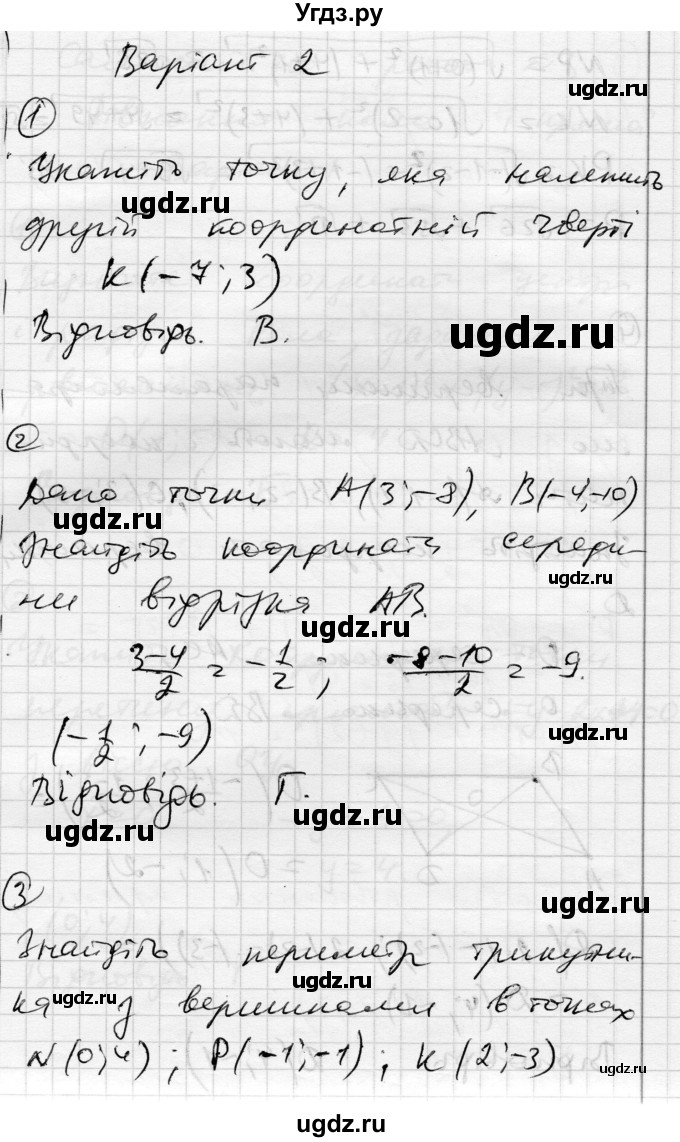 Угдз.ру
Варіант 2
ugdz.ru
1
Укажіть точку, яка належить
ugdz.ru
другій координатній чверті
K(-7; 3)
Відповідь. В.
ugdz.ru
2
Дано точки A(3; -8), B(-4; -10)
ugdz.ru
Знайдіть координати середи-
ugdz.ru
ни відрізка AB.
ugdz.ru
3-4/2 = -1/2; -8-10/2 = -9.
(-1/2; -9)
Відповідь. Г.
ugdz.ru
ugdz.ru
3
ugdz.ru
Знайдіть периметр трикутни-
ugdz.ru
ка з вершинами в точках
ugdz.ru
N(0; 4); P(-1; -1); K(2; -3)
ugdz.ru
ugdz.ru